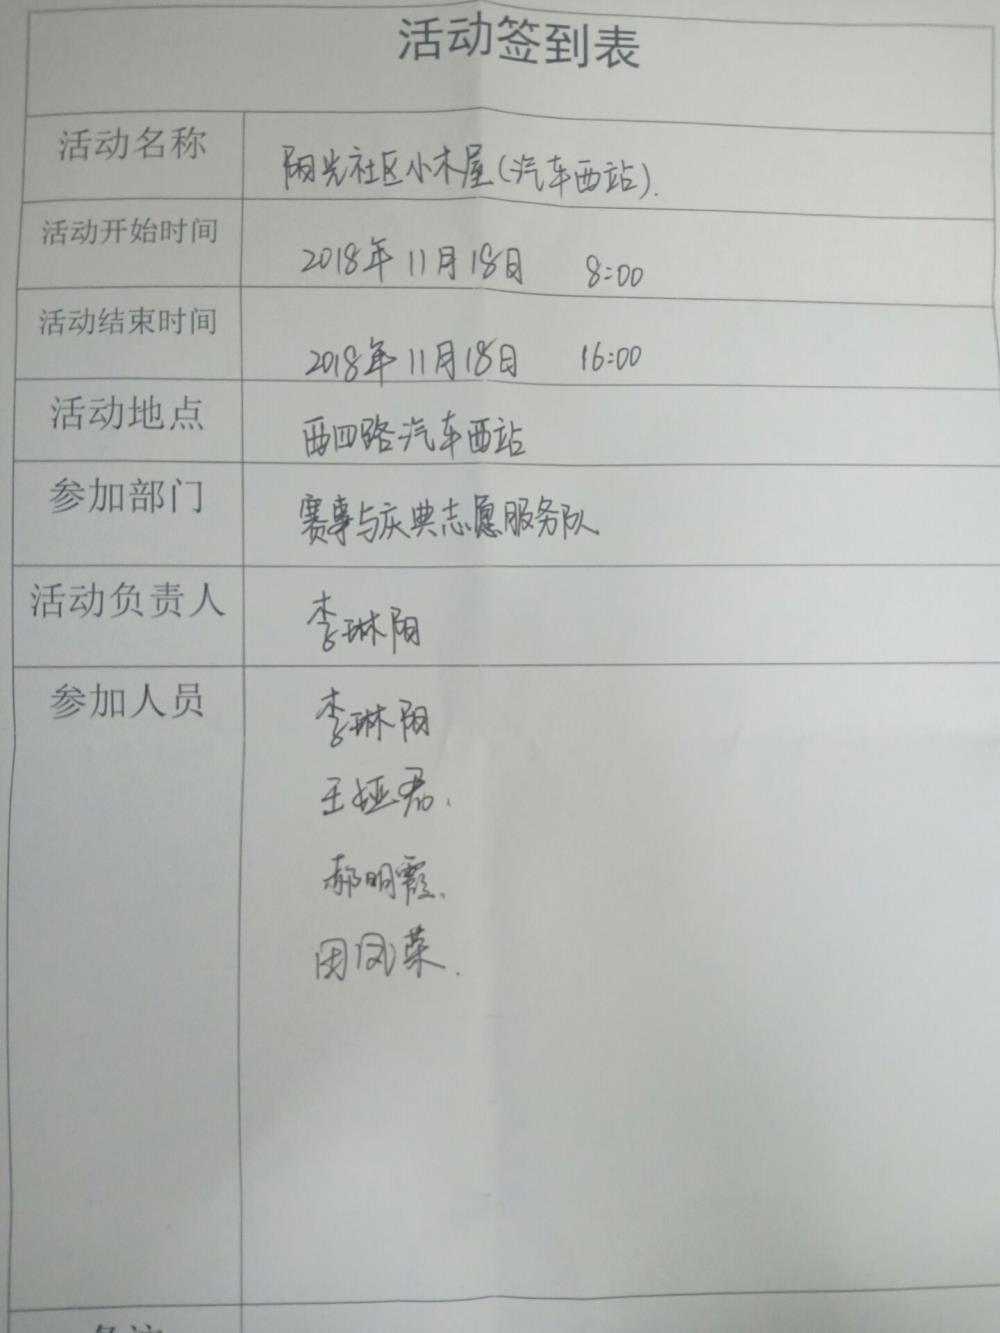 活动签到表
活动名称
阳光社区小木屋(汽车西站).
活动开始时间
2018年11月18日 8:00
活动结束时间
2018年11月18日 16:00
活动地点
西四路汽车西站
参加部门
赛事与庆典志愿服务队
活动负责人
李琳阳
参加人员
李琳阳
王娅君.
郝明霞.
田凤荣.